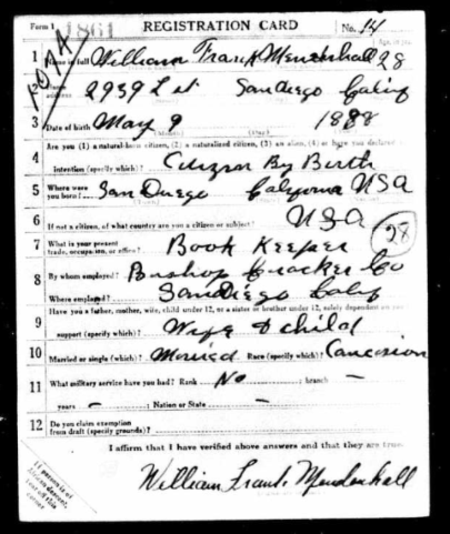 Form 1 1861 REGISTRATION CARD No. 14
1 Name in full William Frank Mendenhall 28
2 address 2939 L st San Diego Calif
3 Date of birth May 9 1888
4 Are you (1) a natural-born citizen, (2) a naturalized citizen, (3) an alien, (4) or have you declared
intention (specify which)? Citizen By Birth
5 Where were you born? San Diego California USA
6 If not a citizen, of what country are you a citizen or subject? USA
7 What is your present trade, occupation, or office? Book Keeper 28
8 By whom employed? Bishop Cracker Co
Where employed? San Diego Calif
9 Have you a father, mother, wife, child under 12, or a sister or brother under 12, solely dependent on you
support (specify which)? Wife & child
10 Married or single (which)? Married Race (specify which)? Caucasion
11 What military service have you had? Rank No ; branch —
years — ; Nation or State —
12 Do you claim exemption from draft (specify grounds)?
I affirm that I have verified above answers and that they are true
If person is of African descent, tear off this corner
William Frank Mendenhall